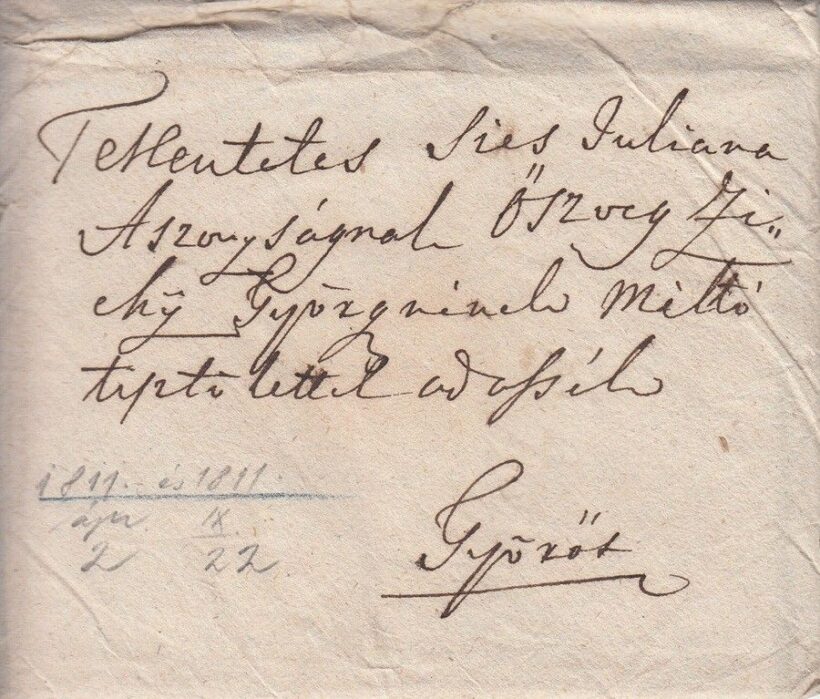 Tekentetes Sies Juliana
Aszonyságnak Őszvegy Zi„
chÿ Györgnének Méltó
tisztölettel adassék
Győrőt
1811.- és 1811.
ápr. IX
2 22